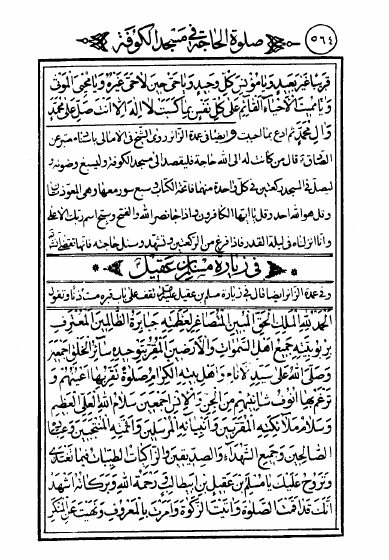 ٥٦٤
صلوة الحاجة في مسجد الكوفة
قريبا غير بعيد ويا مونس كل وحيد ويا حي حين لا حي غيره ويا محيي الموتى
ويا مميت الأحياء القائم على كل نفس بما كسبت لا اله الا انت صل على محمد
وآل محمد ثم ادع بما احببت وايضا في عدة الزائر روى الشيخ في الامالي باسناد معتبر عن
الصادق قال من كانت له الى الله حاجة فليقصد الى مسجد الكوفة وليسبغ وضوئه و
ليصل في المسجد ركعتين في كل واحدة منهما فاتحة الكتاب وسبع سور معها وهي المعوذتان
وقل هو الله احد وقل يا ايها الكافرون واذا جاء نصر الله والفتح وسبح اسم ربك الاعلى
وانا انزلناه في ليلة القدر فاذا فرغ من الركعتين وتشهد وسلم وسئل الله حاجته فانها تقضى انشاء الله
في زيارة مسلم بن عقيل
وفي عدة الزائر ايضا قال في زيارة مسلم بن عقيل تقف على باب قبره مستاذنا وتقول
الحمد لله الملك الحق المبين المتصاغر لعظمته جبابرة الطاغين المعترف
بربوبيته جميع اهل السموات والارضين المقر بتوحيده سائر الخلق اجمعين
وصلى الله على سيد الانام واهل بيته الكرام صلوة تقر بها اعينهم و
ترغم بها انوف شانئيهم من الجن والانس اجمعين سلام الله العلي العظيم
وسلام ملائكته المقربين وانبيائه المرسلين وائمته المنتجبين وعباده
الصالحين وجميع الشهداء والصديقين والزاكيات الطيبات فيما تغتدي
وتروح عليك يا مسلم بن عقيل بن ابيطالب ورحمة الله وبركاته اشهد
انك قد اقمت الصلوة واتيت الزكوة وامرت بالمعروف ونهيت عن المنكر